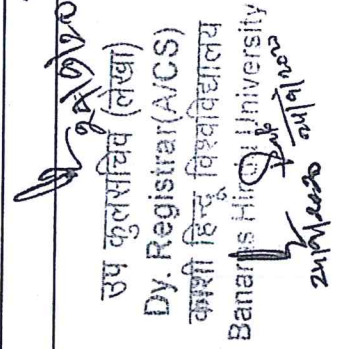 उप कुलसचिव (लेखा)
Dy. Registrar(A/CS)
काशी हिन्दू विश्वविद्यालय
Banaras Hindu University
24/9/2020